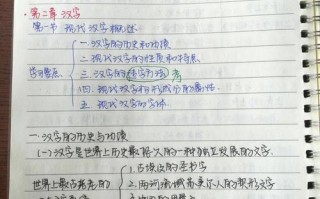 第二章 汉字
第一节 现代汉字概述
学习要点
一.汉字的历史和功绩
二.现代汉字的性质和特点
三.汉字的
四.现代汉字的形成分的属性
五.现代汉字的字体
一.汉字的历史与功绩
(一)汉字是世界上历史最悠久的一种独立发展的文字.
世界上最古老的
1.古埃及的圣书字
2.两河流域苏美尔人的楔形文字